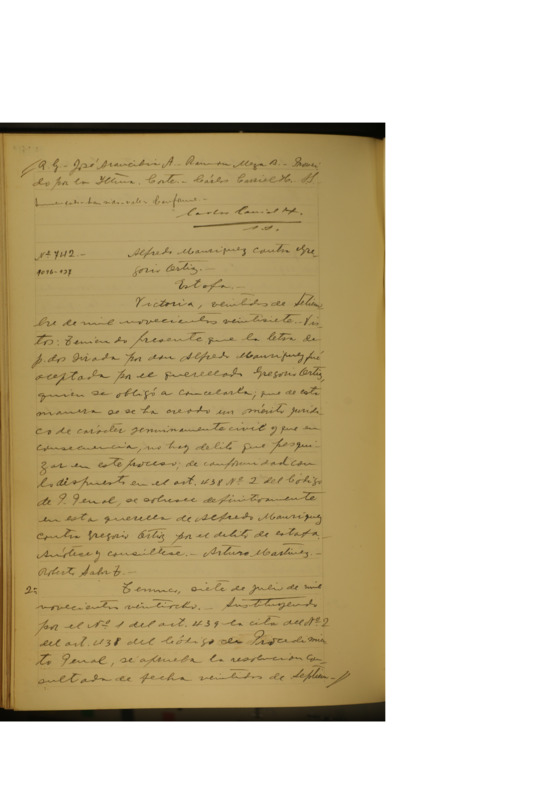 R. G. - José Arancibia A. - Ramon Meza B. - Dicta
do por la Iltma. Corte. - Carlos Carriel H. S.
Carlos Carriel H.
S. S.
Nº 742 -
Alfredo Manriquez contra Gre
gorio Ortiz. -
Estafa. -
Victoria, veintidos de Setiem
bre de mil novecientos veintisiete. Vis
tos: Teniendo presente que la letra de
f. dos jirada por don Alfredo Manriquez fué
aceptada por el querellado Gregorio Ortiz,
quien se obligó a cancelarla; que de esta
manera se ha creado un mérito jurídi
co de carácter jenuinamente civil y que en
consecuencia, no hay delito que pesqui
zar en este proceso; de conformidad con
lo dispuesto en el art. 438 Nº 2 del Código
de P. Penal, se sobresee definitivamente
en esta querella de Alfredo Manriquez
contra Gregorio Ortiz por el delito de estafa.
Anótese y consúltese. - Arturo Martinez. -
Roberto Sabr Z. -
2ª Temuco, siete de julio de mil
novecientos veintiocho. - Sustituyendo
por el Nº 1 del art. 439 la cita del Nº 2
del art. 438 del Código de Procedimien
to Penal, se aprueba la resolucion con
sultada de fecha veintidos de Septiem